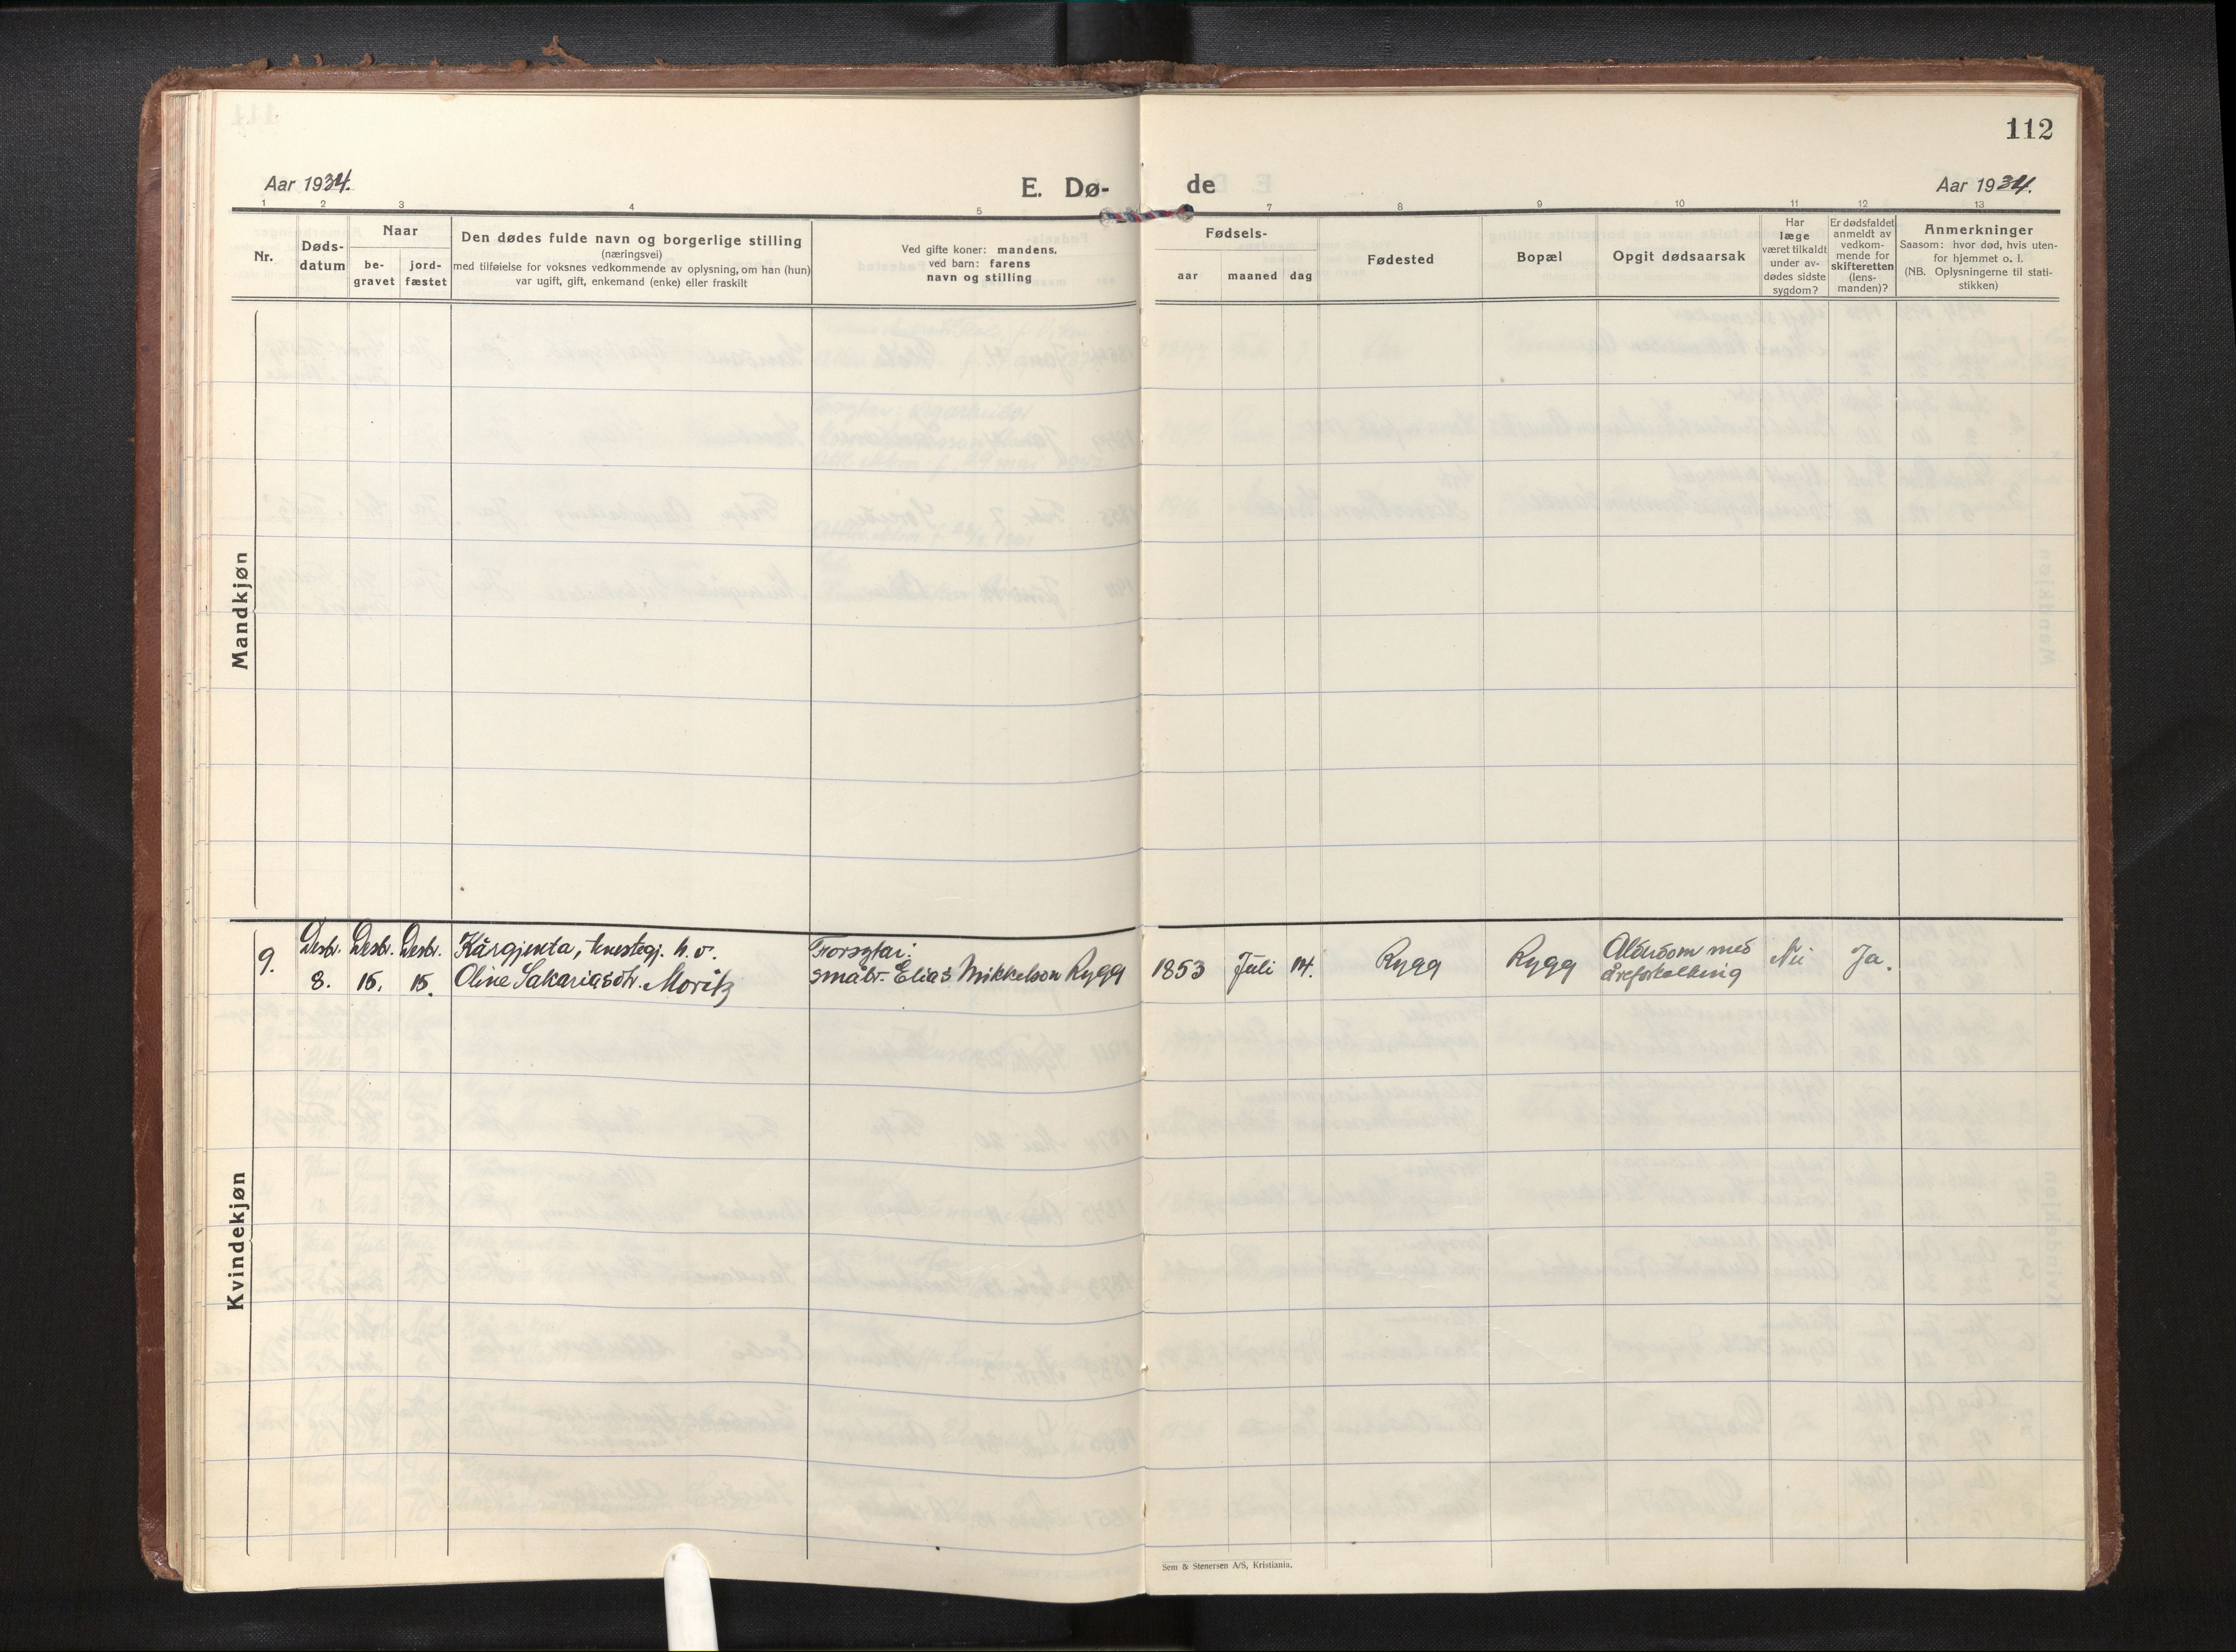 112
Aar 1934.
E. Dø-
de
Aar 1934.
1 2 3 4 5 7 8 9 10 11 12 13
Nr.
Døds-
datum
Naar
be-
gravet
jord-
fæstet
Den dødes fulde navn og borgerlige stilling
(næringsvei)
med tilføielse for voksnes vedkommende av oplysning, om han (hun)
var ugift, gift, enkemand (enke) eller fraskilt
Ved gifte koner: mandens,
ved barn: farens
navn og stilling
Fødsels-
aar maaned dag
Fødested
Bopæl
Opgit dødsaarsak
Har
læge
været tilkaldt
under av-
dødes sidste
sygdom?
Er dødsfaldet
anmeldt av
vedkom-
mende for
skifteretten
(lens-
manden)?
Anmerkninger
Saasom: hvor død, hvis uten-
for hjemmet o. l.
(NB. Oplysningerne til stati-
stikken)
Mandkjøn
Kvindekjøn
9.
Desbr. 8.
Desbr. 15.
Desbr. 15.
Kårgjenta, h. v.
Oline Sakariasdtr. Moritz
Forsytar:
småbr. Elias Mikkelson Rygg
1853 Juli 14. Rygg Rygg
Alderdom med
åreforkalking
Nei
Ja.
Sem & Stenersen A/S, Kristiania.